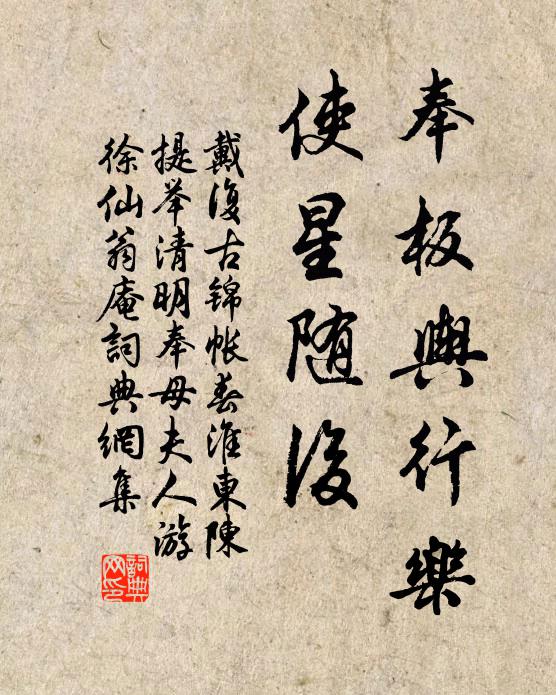 奉板輿行樂
使星随後
戴復古錦帳春淮東陳
提举清明奉母夫人游
徐仙翁庵詞典網集
詞典网印